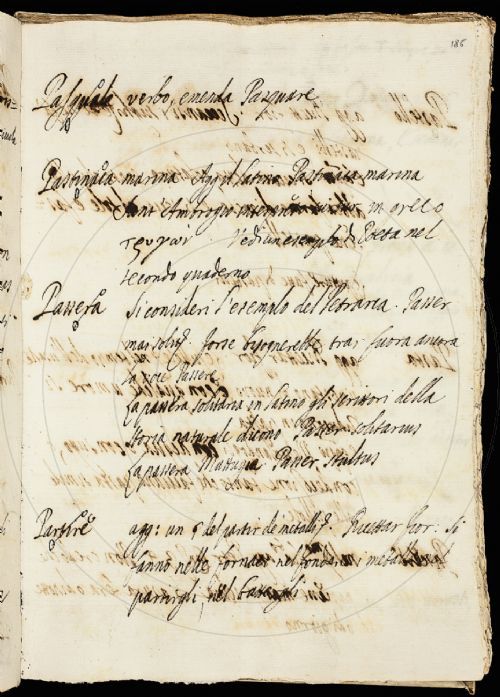 186
verbo, emenda Pasquare
Pastinaca marina Agg: latino Pastinaca marina
Sant Ambrogio in
τρυγών. Vedi un esemplo di nel
secondo quaderno
Passera Si consideri l'esemplo del Petrarca. Passer
mai solit. forse bisognerebbe trar fuora ancora
la voce Passere
La passera solitaria in latino gli scrittori della
storia naturale dicono Passer solitarius
La passera Mattugia Passer stultus
Partire agg: un § del partir de metalli. fior: Si
fanno nelle fornaci nel fonder i metalli nel
partirgli, nel